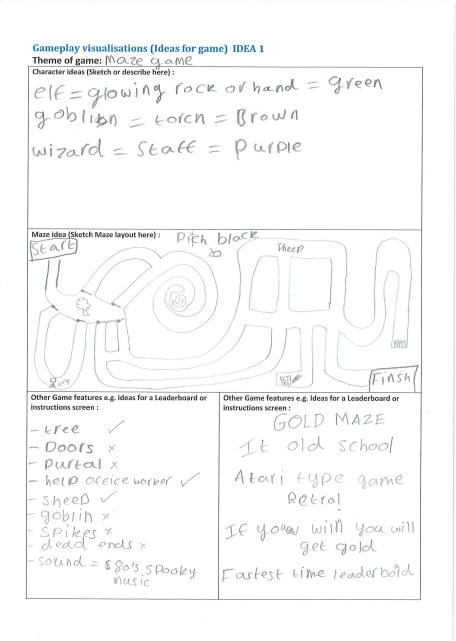 Gameplay visualisations (Ideas for game) IDEA 1
Theme of game: Maze game
Character ideas (Sketch or describe here) :
elf = glowing rock or hand = green
goblin = torch = Brown
wizard = Staff = purple
Maze idea (Sketch Maze layout here) :
Pitch black
Start
Sheep
Finsh
Other Game features e.g. ideas for a Leaderboard or
instructions screen :
- tree ✓
- Doors x
- purtal x
- help office worker ✓
- sheep ✓
- goblin x
- spikes x
- dead ends x
- sound = 80's spooky
music
Other Game features e.g. Ideas for a Leaderboard or
instructions screen :
GOLD MAZE
It old school
Atari type game
Retro!
If you win you will
get gold
Fastest time leaderboard